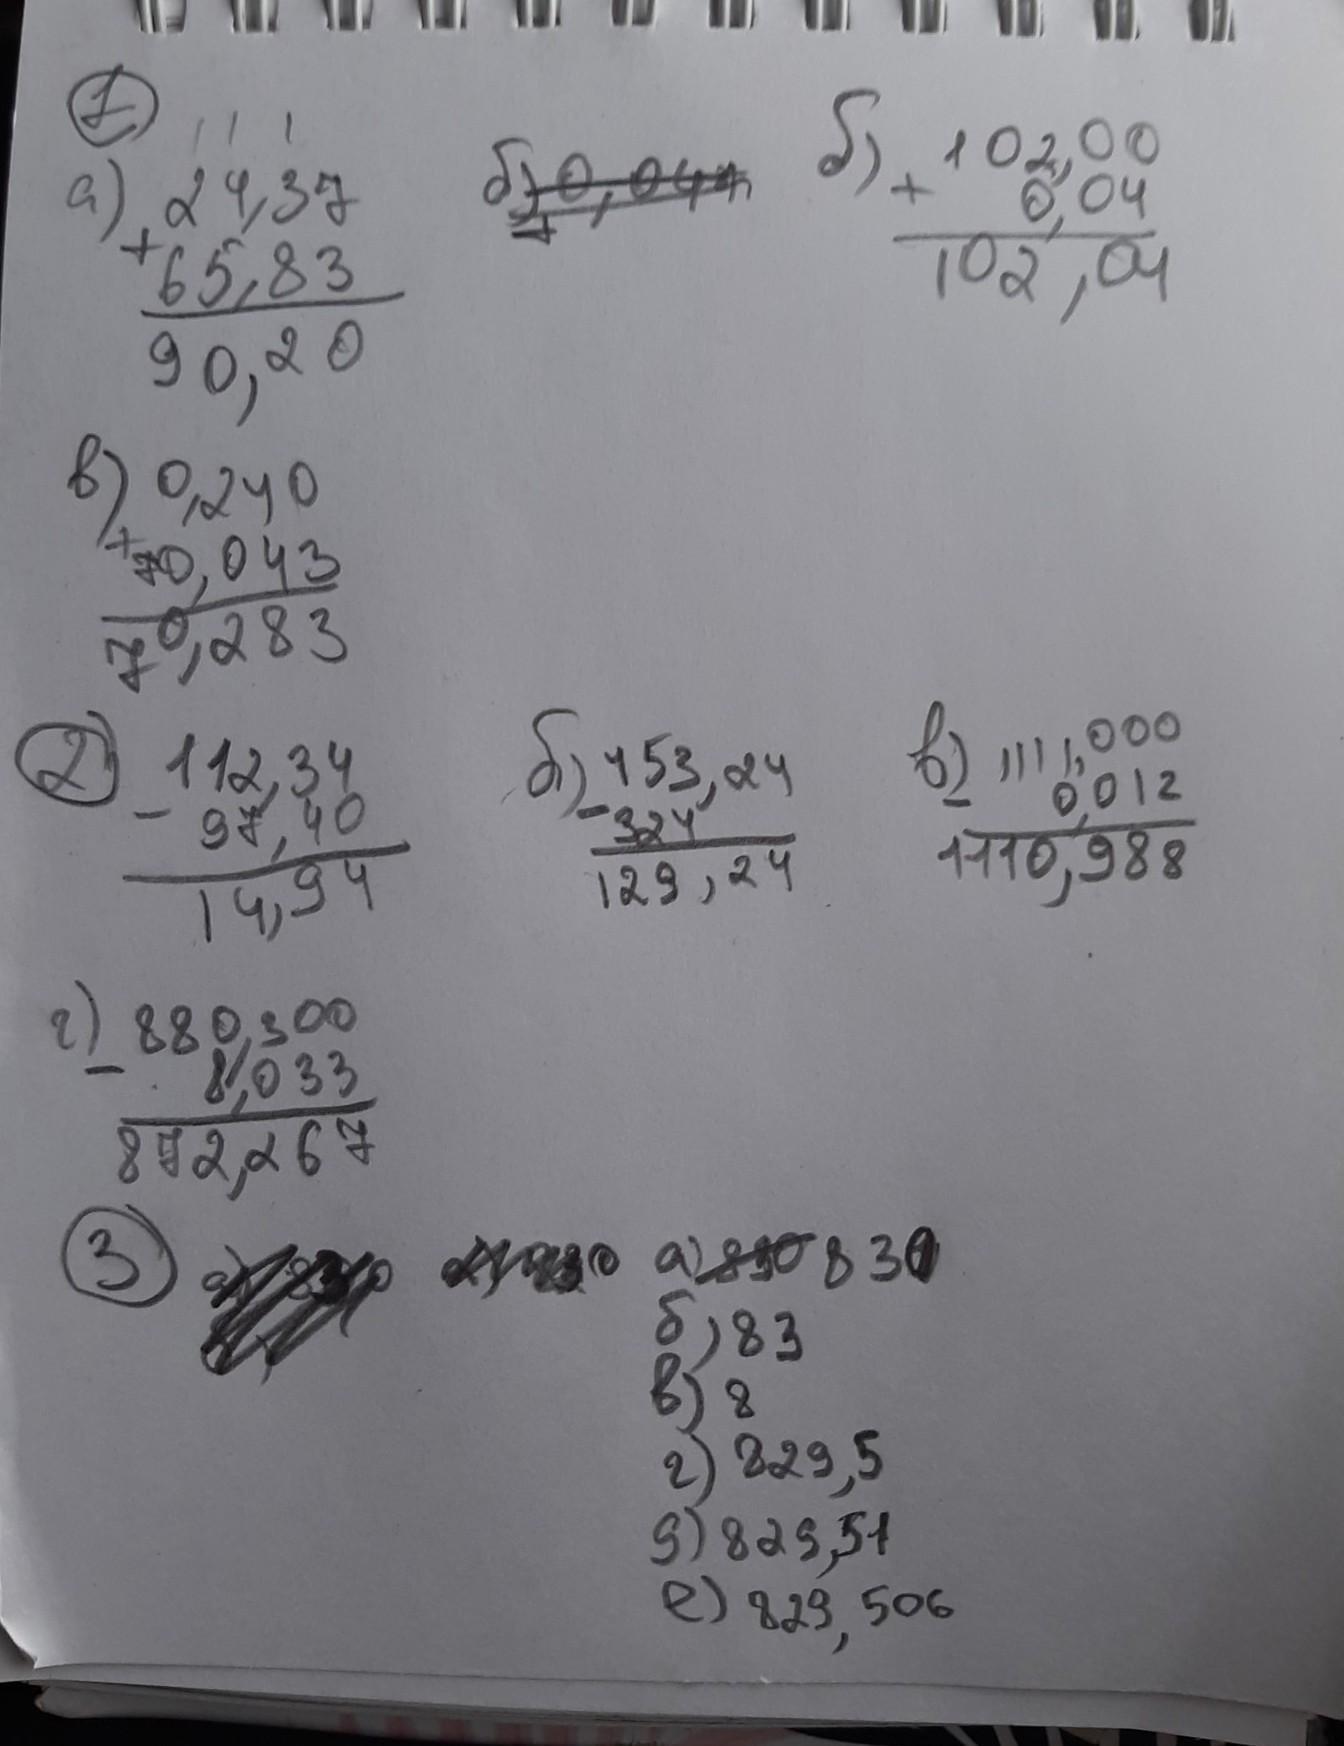 1
1 1 1
а) 24,37
+ 65,83
90,20
б) 0,04
+
б) 102,00
+ 0,04
102,04
в) 0,240
+ 70,043
70,283
2
112,34
- 97,40
14,94
б) 453,24
- 324
129,24
в) 1111,000
- 0,012
1110,988
г) 880,300
- 8,033
872,267
3
а) 830
б) 83
в) 8
г) 829,5
д) 829,51
е) 829,506